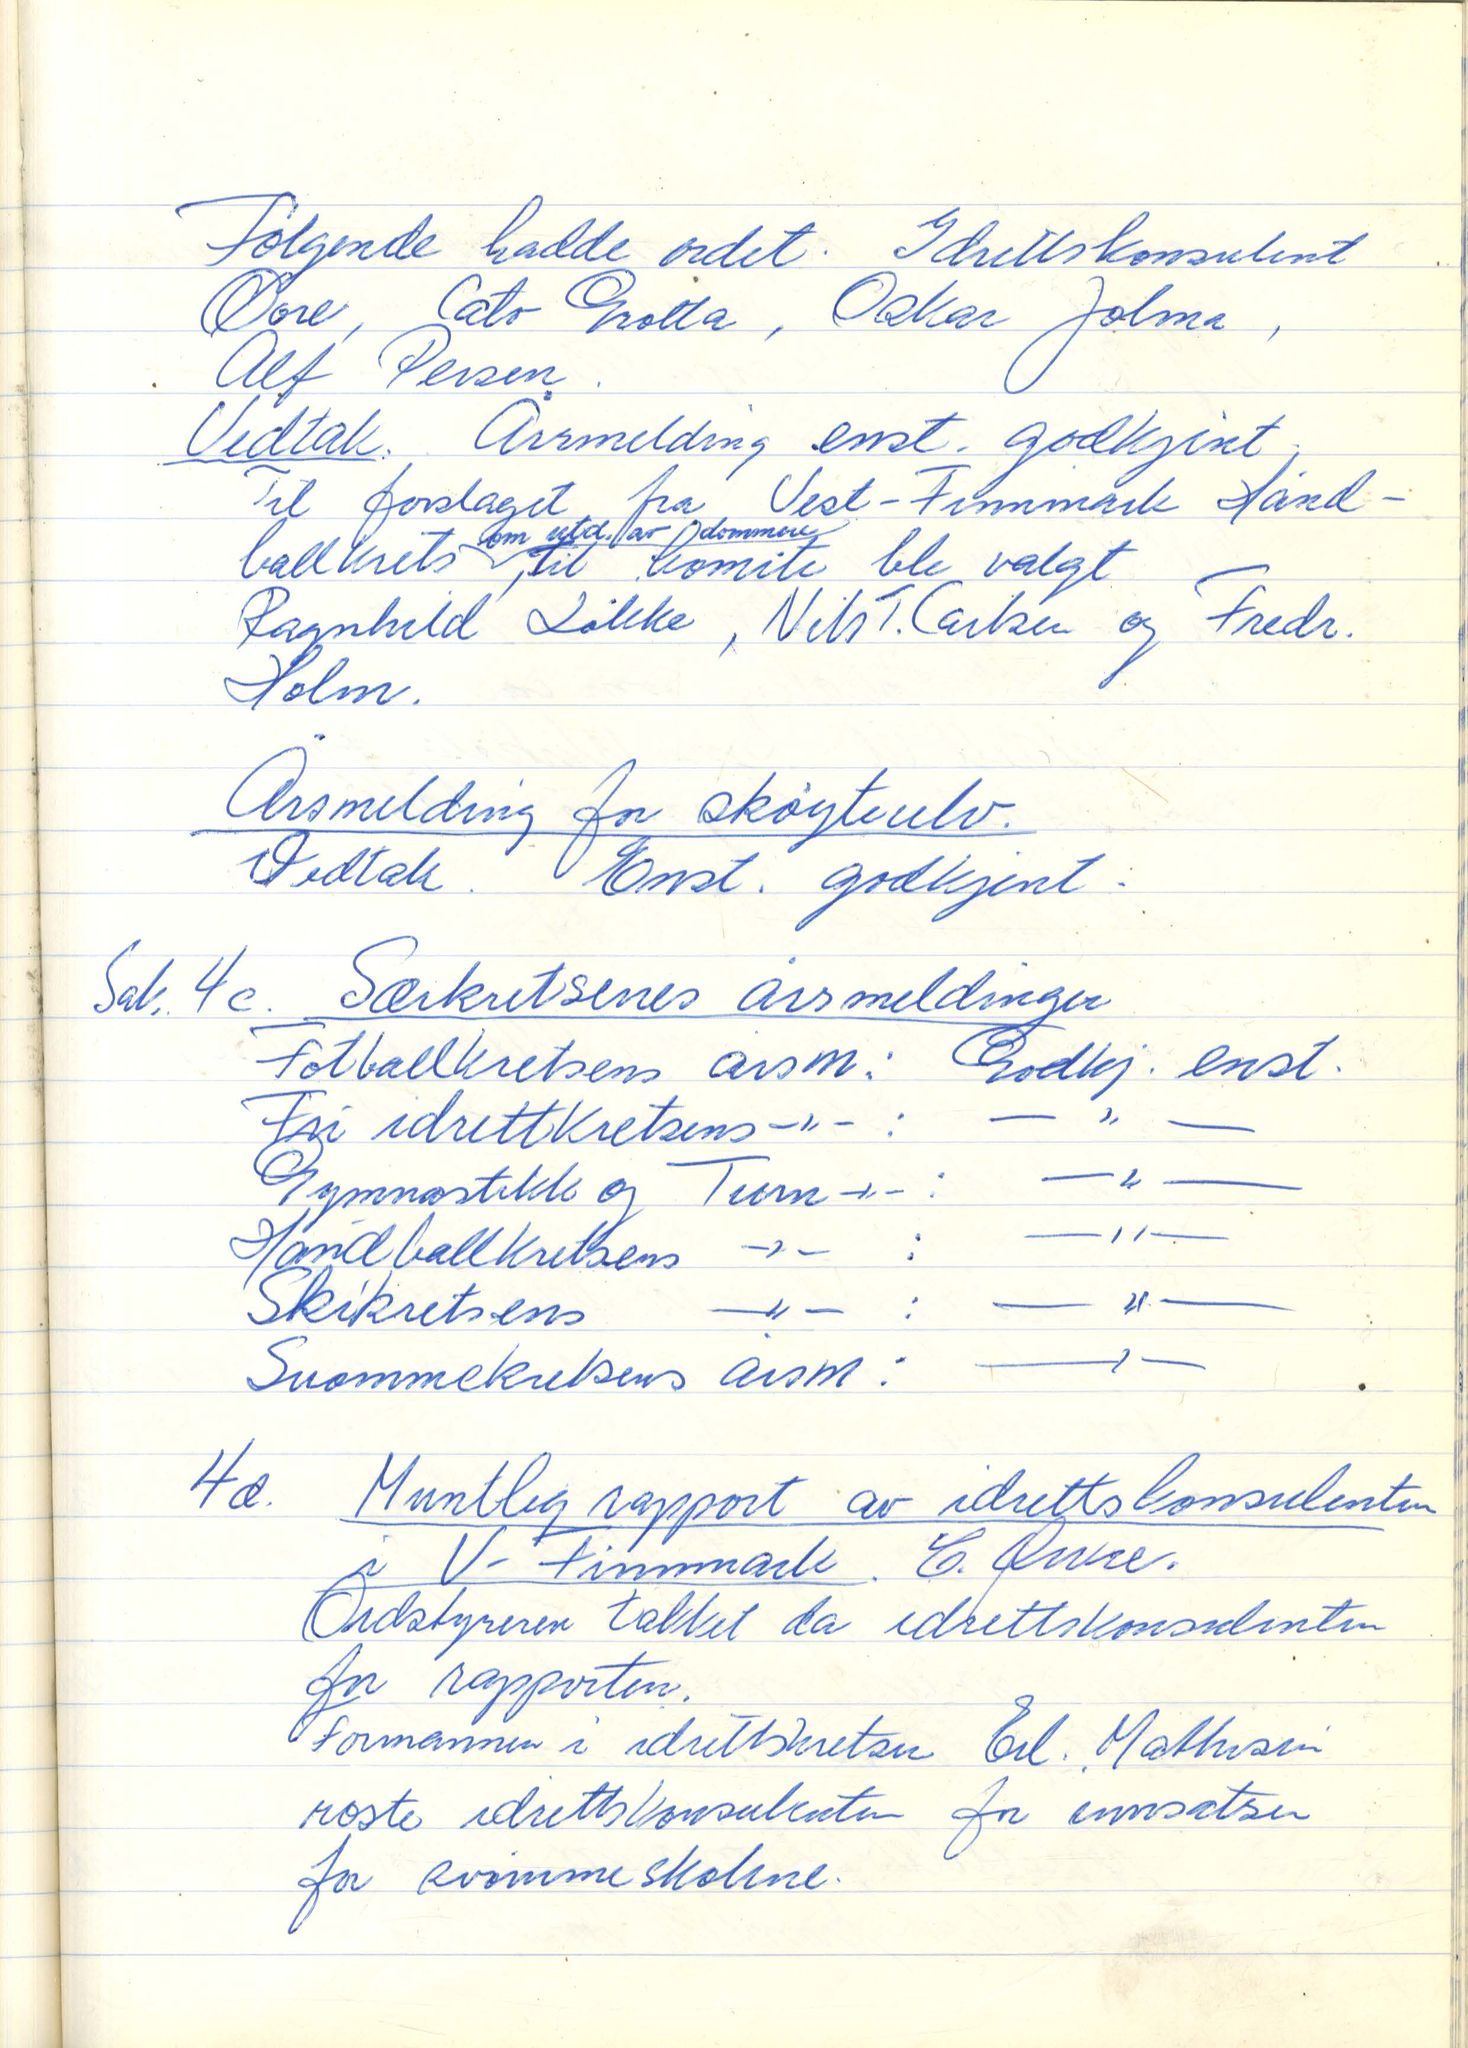 Følgende hadde ordet. Idrettskonsulent
Øvre, Cato Grotta, Oskar Jolma,
Alf Persen.
Vedtak. Årsmelding enst. godkjent.
Til forslaget fra Vest-Finnmark Hånd-
ballkrets om utd. av dommere, til komite ble valgt
Ragnhild Løkke, Nils T. Carlsen og Fredr.
Holm.
Årsmelding for skøyteutv.
Vedtak. Enst. godkjent.
Sak. 4c. Særkretsenes årsmeldinger
Fotballkretsens årsm: Godkj. enst.
Fri idrettkretsens -"- : - " -
Gymnastikk og Turn -"- : - " -
Håndballkretsens -"- : - " -
Skikretsens -"- : - " -
Svømmekretsens årsm: - " -
4d. Muntlig rapport av idrettskonsulenten
i V-Finnmark. E. Øvre.
Ordstyreren takket da idrettskonsulenten
for rapporten.
Formannen i idrettskretsen Erl. Mathisen
roste idrettskonsulenten for innsatsen
for svømmeskolene.